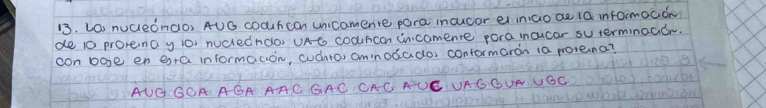 13. Los nucleótidos AUG codifican unicamente para indicar el inicio de la información
de la proteina y los nucleótidos UAG codifican únicamente para indicar su terminación.
con base en esta información, cuántos aminoácidos conformarón la proteina?
AUG GCA AGA AAC GAC CAC AUC UAG GUA UGC